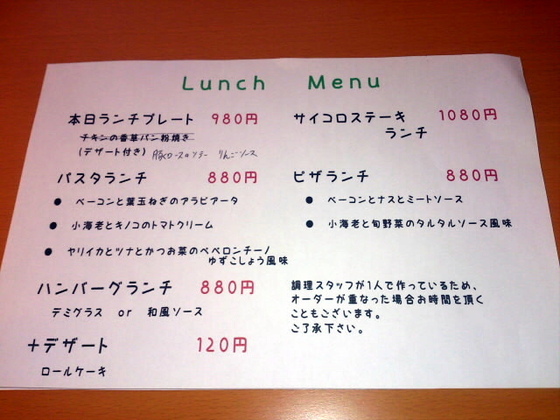 Lunch Menu
本日ランチプレート 980円
チキンの香草パン粉焼き
(デザート付き) 豚ロースのソテー りんごソース
パスタランチ 880円
● ベーコンと葉玉ねぎのアラビアータ
● 小海老とキノコのトマトクリーム
● ヤリイカとツナとかつお菜のペペロンチーノ
ゆずこしょう風味
ハンバーグランチ 880円
デミグラス or 和風ソース
+デザート 120円
ロールケーキ
サイコロステーキ 1080円
ランチ
ピザランチ 880円
● ベーコンとナスとミートソース
● 小海老と旬野菜のタルタルソース風味
調理スタッフが1人で作っているため、
オーダーが重なった場合お時間を頂く
こともございます。
ご了承下さい。